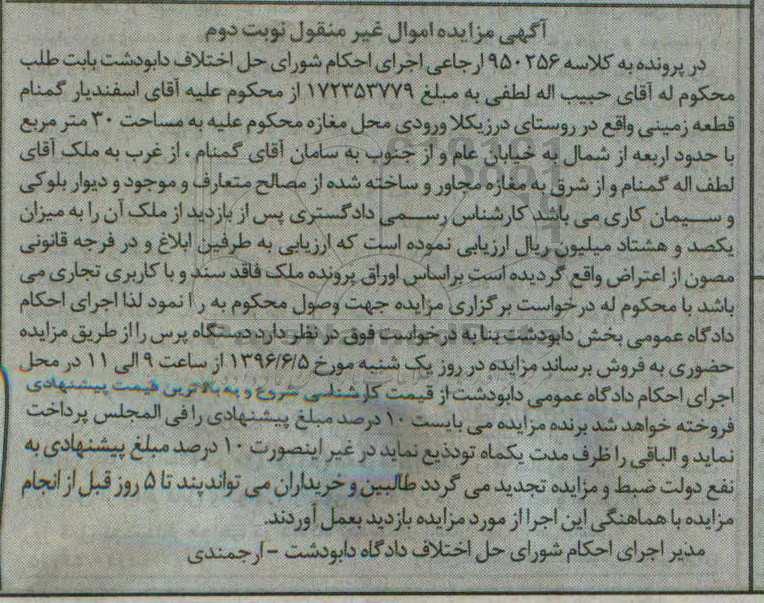 آگهی مزایده اموال غیر منقول نوبت دوم
در پرونده به کلاسه ۹۵۰۲۵۶ ارجاعی اجرای احکام شورای حل اختلاف دابودشت بابت طلب
محکوم له آقای حبیب اله لطفی به مبلغ ۱۷۲۳۵۳۷۷۹ از محکوم علیه آقای اسفندیار گمنام
قطعه زمینی واقع در روستای درزیکلا ورودی محل مغازه محکوم علیه به مساحت ۳۰ متر مربع
با حدود اربعه از شمال به خیابان عام و از جنوب به سامان آقای گمنام ، از غرب به ملک آقای
لطف اله گمنام و از شرق به مغازه مجاور و ساخته شده از مصالح متعارف و موجود و دیوار بلوکی
و سیمان کاری می باشد کارشناس رسمی دادگستری پس از بازدید از ملک آن را به میزان
یکصد و هشتاد میلیون ریال ارزیابی نموده است که ارزیابی به طرفین ابلاغ و در فرجه قانونی
مصون از اعتراض واقع گردیده است براساس اوراق پرونده ملک فاقد سند و با کاربری تجاری می
باشد با محکوم له درخواست برگزاری مزایده جهت وصول محکوم به را نمود لذا اجرای احکام
دادگاه عمومی بخش دابودشت بنا به درخواست فوق در نظر دارد دستگاه پرس را از طریق مزایده
حضوری به فروش برساند مزایده در روز یک شنبه مورخ ۱۳۹۶/۶/۵ از ساعت ۹ الی ۱۱ در محل
اجرای احکام دادگاه عمومی دابودشت از قیمت کارشناسی شروع و به بالاترین قیمت پیشنهادی
فروخته خواهد شد برنده مزایده می بایست ۱۰ درصد مبلغ پیشنهادی را فی المجلس پرداخت
نماید و الباقی را ظرف مدت یکماه تودذیع نماید در غیر اینصورت ۱۰ درصد مبلغ پیشنهادی به
نفع دولت ضبط و مزایده تجدید می گردد طالبین و خریداران می توانندپند تا ۵ روز قبل از انجام
مزایده با هماهنگی این اجرا از مورد مزایده بازدید بعمل آوردند.
مدیر اجرای احکام شورای حل اختلاف دادگاه دابودشت - ارجمندی